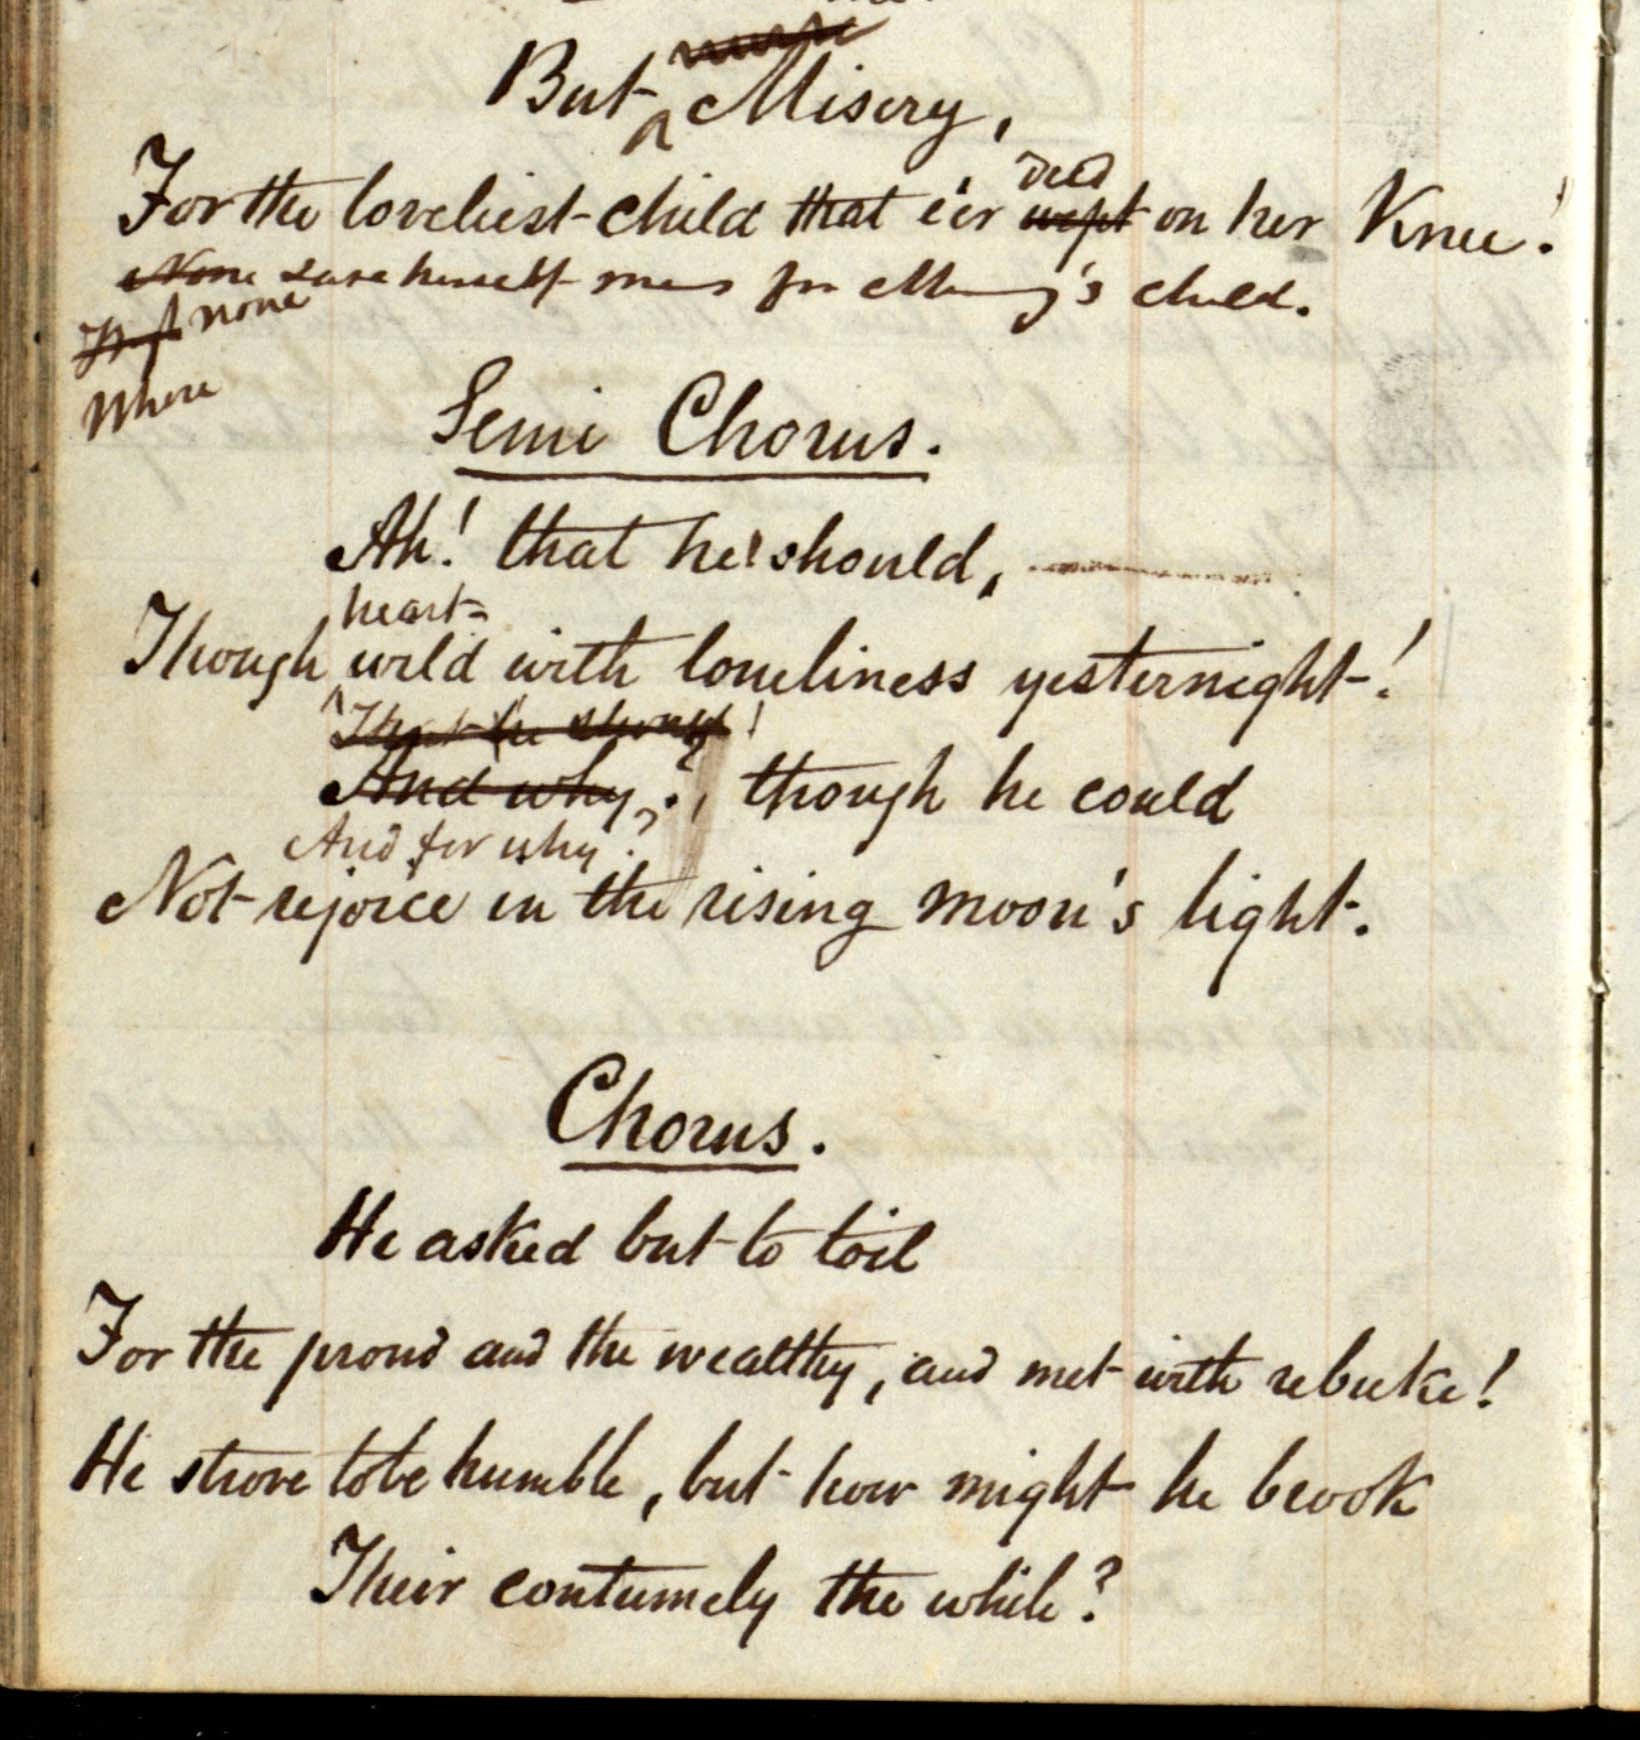 But Misery,
died
For the loveliest child that e'er wept on her Knee!
None save herself for M y's child.
none
Where
Semi Chorus.
Ah! that he should,
heart-
Though wild with loneliness yesternight!
That he should!
And why?, though he could
And for why?
Not rejoice in the rising moon's light.
Chorus.
He asked but to toil
For the proud and the wealthy, and met with rebuke!
He strove to be humble, but how might he brook
Their contumely the while?